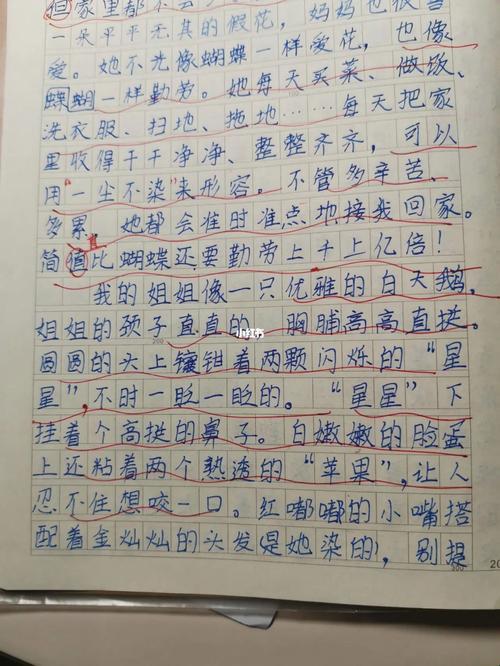 但家里都不会
一朵平平无其的假花,妈妈也很喜
爱。她不光像蝴蝶一样爱花,也像
蝴蝶一样勤劳。她每天买菜、做饭、
洗衣服、扫地、拖地……每天把家
里收得干干净净、整整齐齐,可以
用“一尘不染”来形容。不管多辛苦、
多累,她都会准时准点地接我回家。
直
简值比蝴蝶还要勤劳上千上亿倍!
我的姐姐像一只优雅的白天鹅,
姐姐的颈子直直的,胸脯高高直挺。
圆圆的头上镶钳着两颗闪烁的“星
星”,不时一眨一眨的。“星星”下
挂着个高挺的鼻子。白嫩嫩的脸蛋
上还粘着两个熟透的“苹果”,让人
忍不住想咬一口。红嘟嘟的小嘴搭
配着金灿灿的头发(是她染的),别提
小红书
200
300